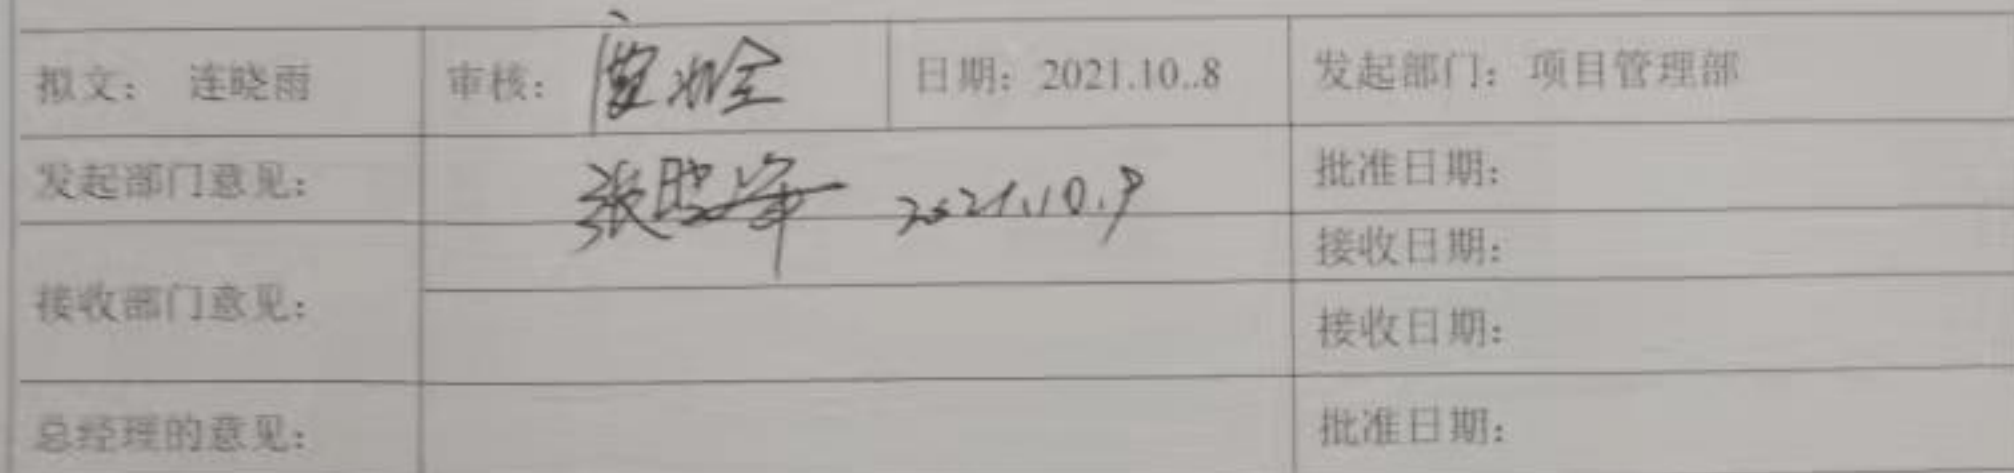 拟文： 连晓雨 审核： 日期：2021.10..8 发起部门：项目管理部
发起部门意见： 张 2021.10.9 批准日期：
接收日期：
接收部门意见：
接收日期：
总经理的意见： 批准日期：